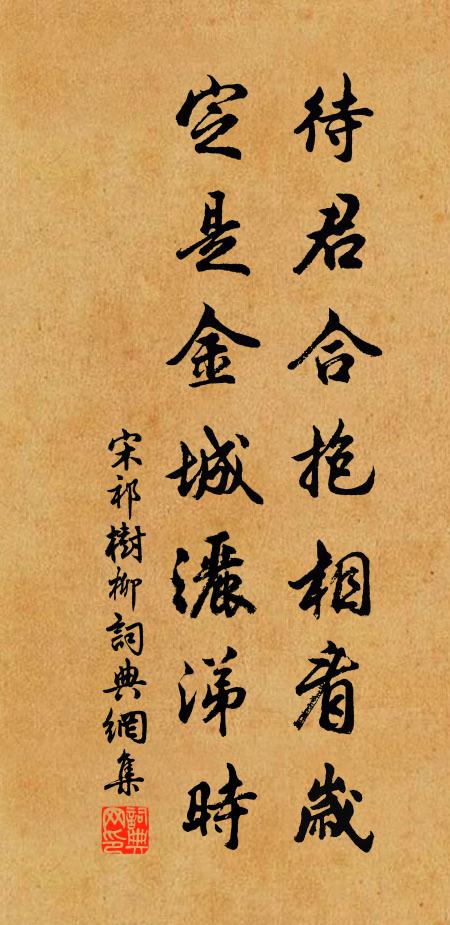 待君合抱相看歲
定是金城灑涕時
宋祁樹柳詞典網集
詞典网印